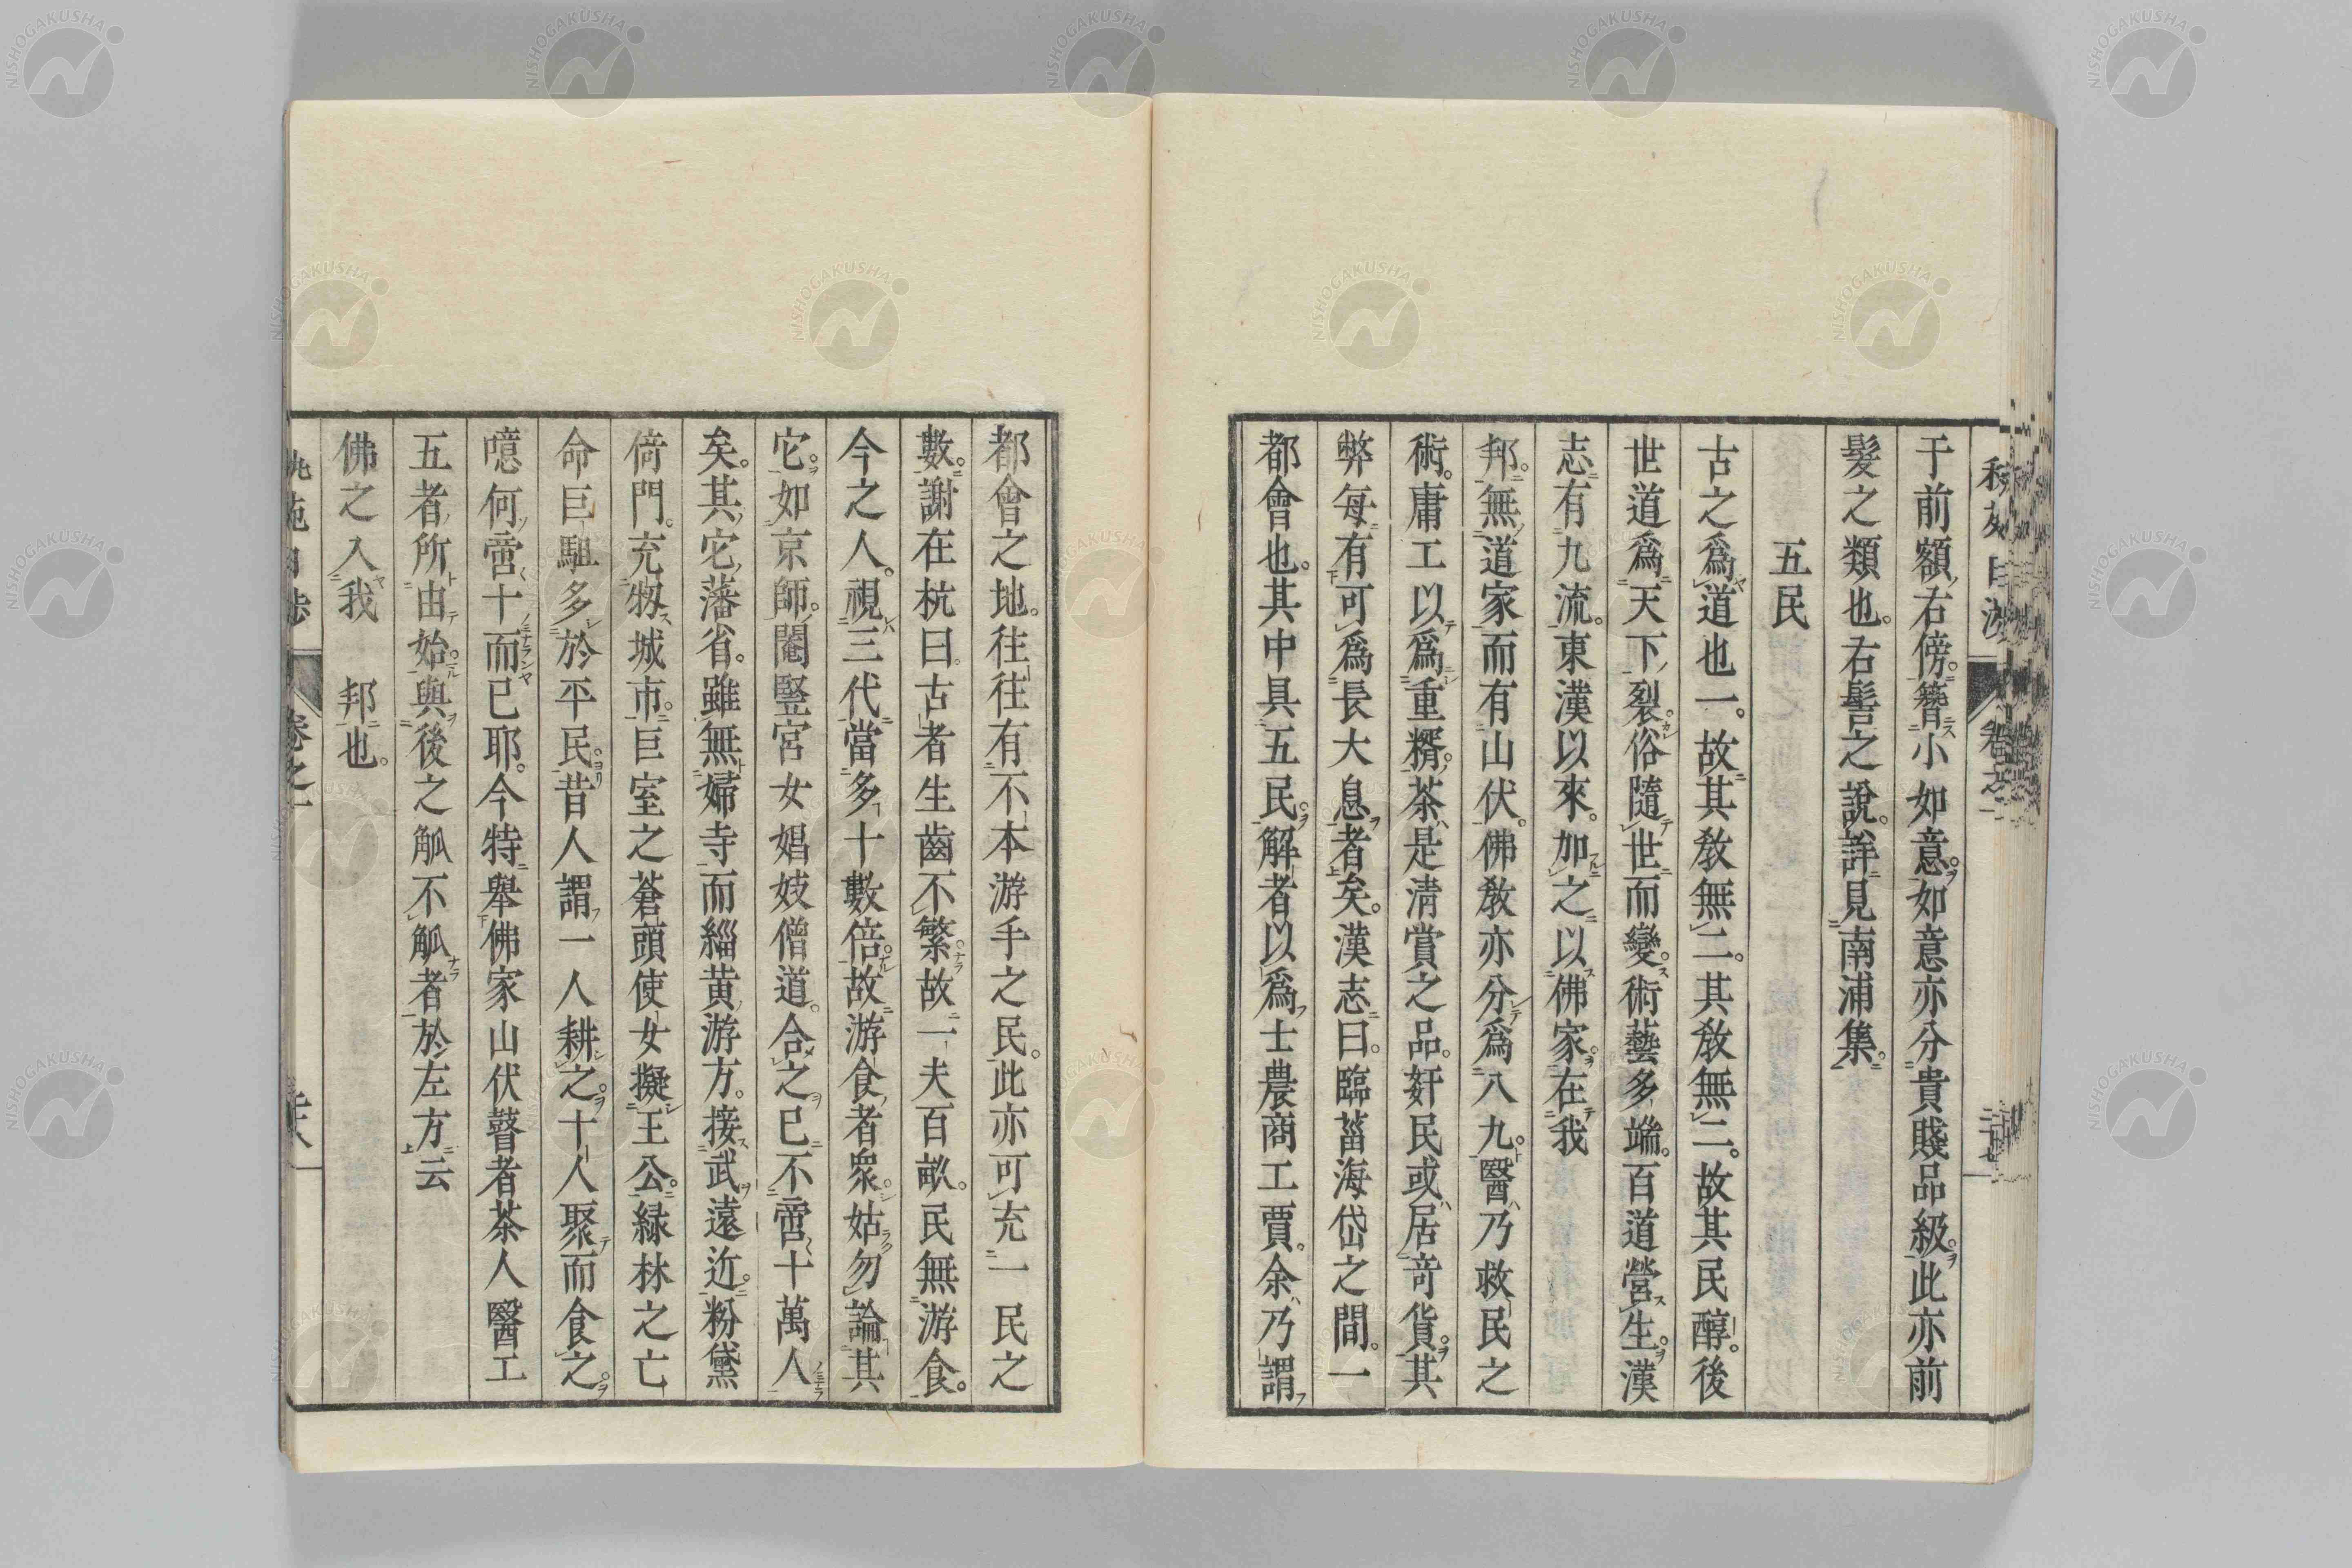 于前額右傍簪小如意如意亦分貴賤品級此亦前
髮之類也。右髻之說。詳見南浦集。
五民
古之爲道也一。故其敎無二。其敎無二。故其民醇。後
世道爲天下裂。俗隨世而變。術藝多端。百道營生。漢
志有九流。東漢以來。加之以佛家。在我
邦。無道家而有山伏。佛敎亦分爲八九。醫乃救民之
術。庸工以爲重糈。茶是淸賞之品。奸民或居竒貨。其
弊每有可爲長大息者矣。漢志曰。臨菑海岱之間。一
都會也。其中具五民。解者以爲士農商工賈。余乃謂
都會之地。往往有不本游手之民。此亦可充一民之
數。謝在杭曰。古者生齒不繁。故一夫百畝。民無游食。
今之人。視三代當多十數倍。故游食者衆。姑勿論其
它。如京師。閹豎宮女娼妓僧道。合之已不啻十萬人
矣。其它藩省。雖無婦寺而緇黃游方。接武遠近。粉黛
倚門。充牣城市。巨室之蒼頭使女擬王公。綠林之亡
命巨駔多於平民。昔人謂一人耕之。十人聚而食之。
噫何啻十而已耶。今特舉佛家山伏瞽者茶人醫工
五者所由始。與後之觚不觚者於左方云
佛之入我 邦也。
卷之一
NISHOGAKUSHA